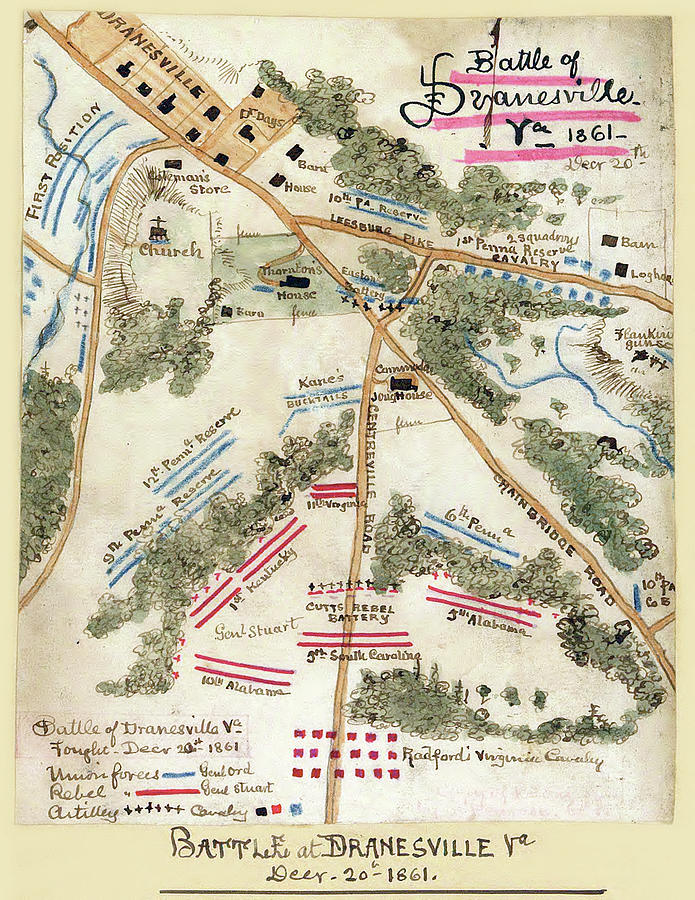 Battle of
Dranesville.
Va 1861-
Decr 20th
DRANESVILLE
Dr Days
FIRST POSITION
Coleman's
Store
Barn
House
10th Pa Reserve
LEESBURG PIKE
2 Squadrons
1st Penna Reserve
CAVALRY
Barn
Church
fence
Thorntons
House
Easton's
Battery
Barn
fence
guns
Kane's
BUCKTAILS
House
fence
CENTREVILLE ROAD
CHAINBRIDGE ROAD
12th Penna Reserve
9th Penna Reserve
11th Virginia
6th Penna
1st Kentucky
10th Pa
Co B
CUTTS REBEL
BATTERY
5th Alabama
Genl Stuart
5th South Carolina
10th Alabama
Radford's Virginia Cavalry
Battle of Dranesville Va
Fought - Decr 20th 1861
Union forces Genl Ord
Rebel " Genl Stuart
Artillery Cavalry
BATTLE at DRANESVILLE Va
Decr - 20th 1861.